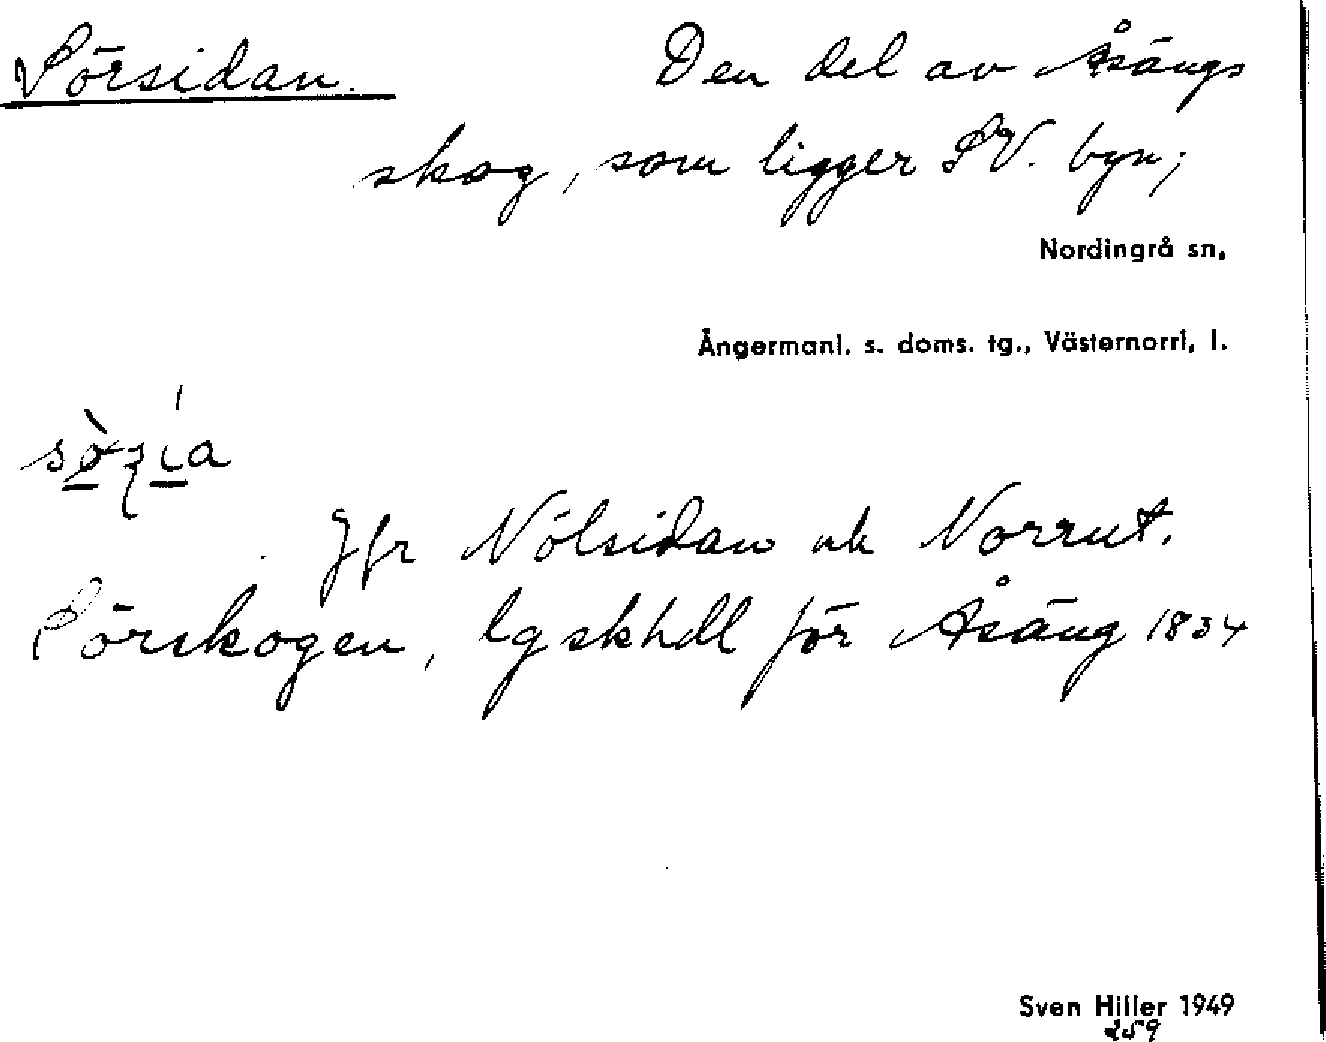 Sörsidan. Den del av Åsängs
skog, som ligger SV. byn;
Nordingrå sn.
Ångermanl. s. doms. tg., Västernorrl. l.
Jfr Nölsidan och Norrut.
Sörskogen, lgskhdl för Åsäng 1834
Sven Hiller 1949
259